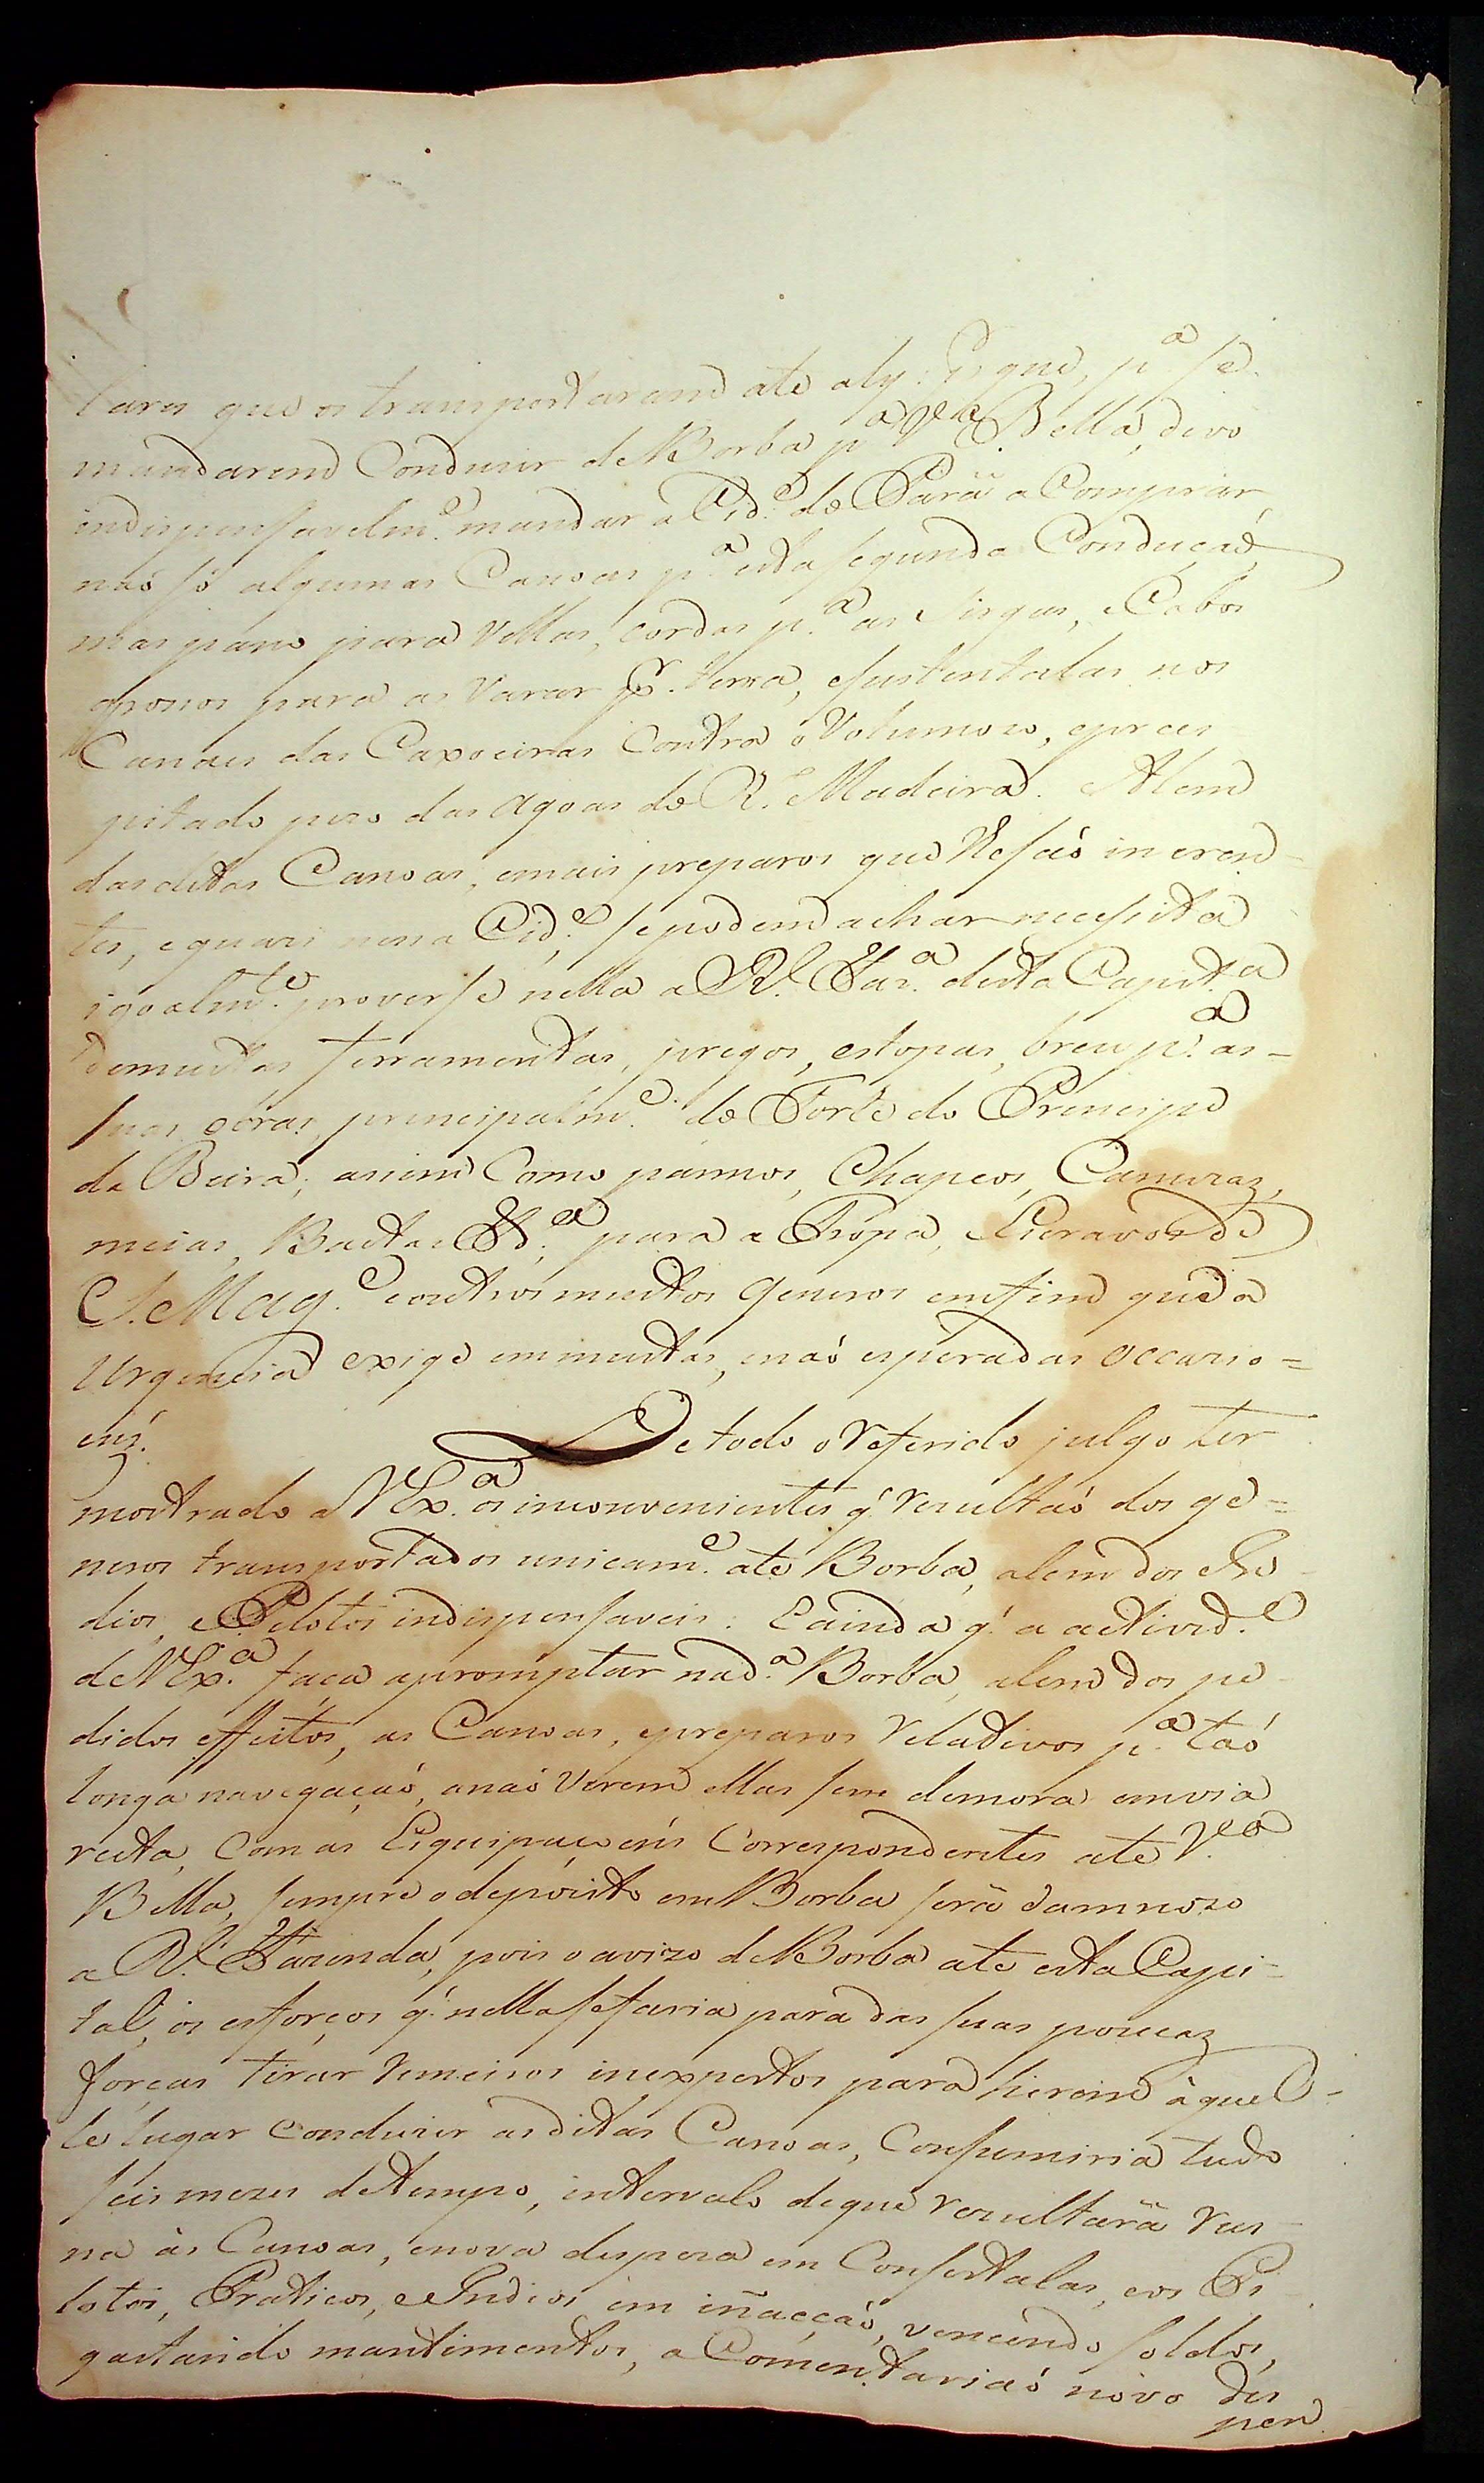 tares que os transportarem ate aly: P. que, p.ª se
mandarem Conduzir de Borba p.ª V.ª Bella, devo
indispensavelm.e mandar a Cid.e do Pará a Comprar
naó só algumas Canoas p.ª esta segunda Conduçaõ,
mas pano para Vellas, cordas p.ª as Sirgas, e Cabos
grosos para as Varar P.r terra, e sustentalas nos
Canaes das Caxoeiras Contra o Volumozo, e preci-
pitado pezo das agoas do R.o Madeira. Alem
das ditas Canoas, e mais preparos que lhesaó ineren-
tes, e quazi nessa Cid.e se podem achar necesita
igoalm.e proverse nella a R.l Faz.ª desta Capit.ª
de muitas ferramentas, pregos, estopas, breu p.ª as-
suas obras, principalm.e do Forte do Principe
da Beira; asim Como pannos, Chapeos, Camizas,
meias, Baetas &.ª para a Tropa, Escravos de
S. Mag.e e outros muitos generos emfim que a
Urgencia exige em muitas, e naó esperadas occazio=
ens.
De todo o referido julgo ter
mostrado a V Ex.ª os inconvenientes q̃ Rezultaó dos ge=
neros transportados unicam.e ate Borba, alem dos In-
dios, e Pilotos indispensaveis. E ainda q̃ a activid.e
de V Ex.ª faça apromptar na d.ª Borba, alem dos pe-
didos effeitos, as Canoas, e preparos Relativos p.ª taó
longa navegaçaó, a naó virem ellas sem demora em via
recta, Com as Esquipaçoens Correspondentes ate V.ª
Bella, sempre o depozito em Borba será damnozo
a R.l Fazenda, pois o avizo de Borba ate esta Capi-
tal, os esforços q̃ nella se faria para das suas poucas
forças tirar Remeiros inexpertos para hirem àquel-
le lugar Conduzir as ditas Canoas, Consumiria tudo
seis mezes de tempo, intervalo de que rezultará Rui-
na às Canoas, e nova despeza em Consertalas, e os Pi-
lotos, Praticos, e Indios em inacçaó, vencendo soldos,
gastando mantimentos, a Comentariaó novo des
pen